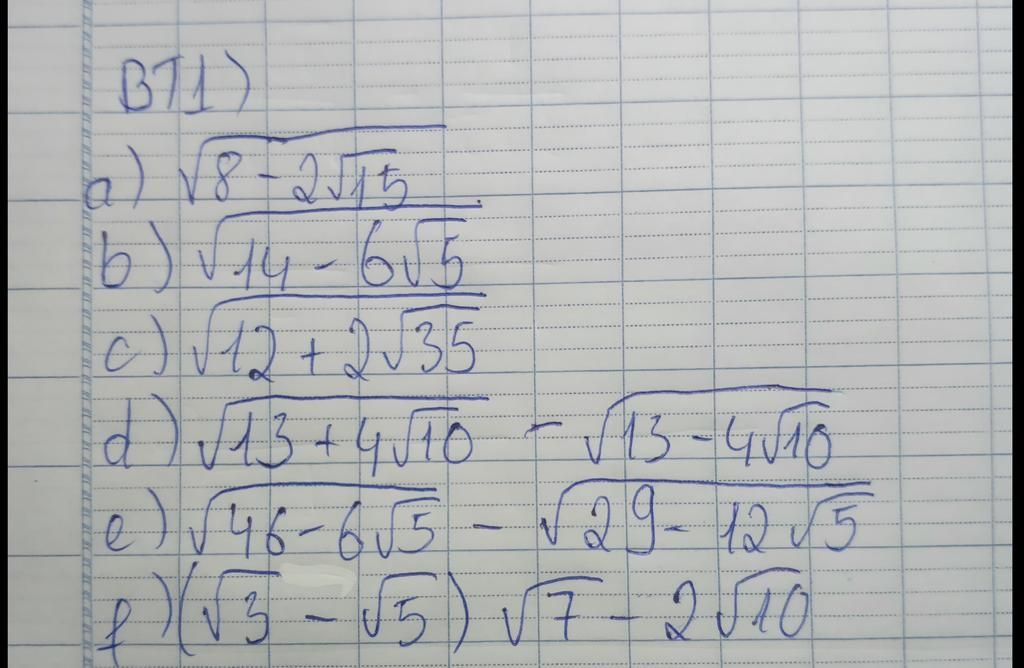 BT1)
a) √(8 - 2√15)
b) √(14 - 6√5)
c) √(12 + 2√35)
d) √(13 + 4√10) - √(13 - 4√10)
e) √(46 - 6√5) - √(29 - 12√5)
f) (√3 - √5) √7 - 2√10